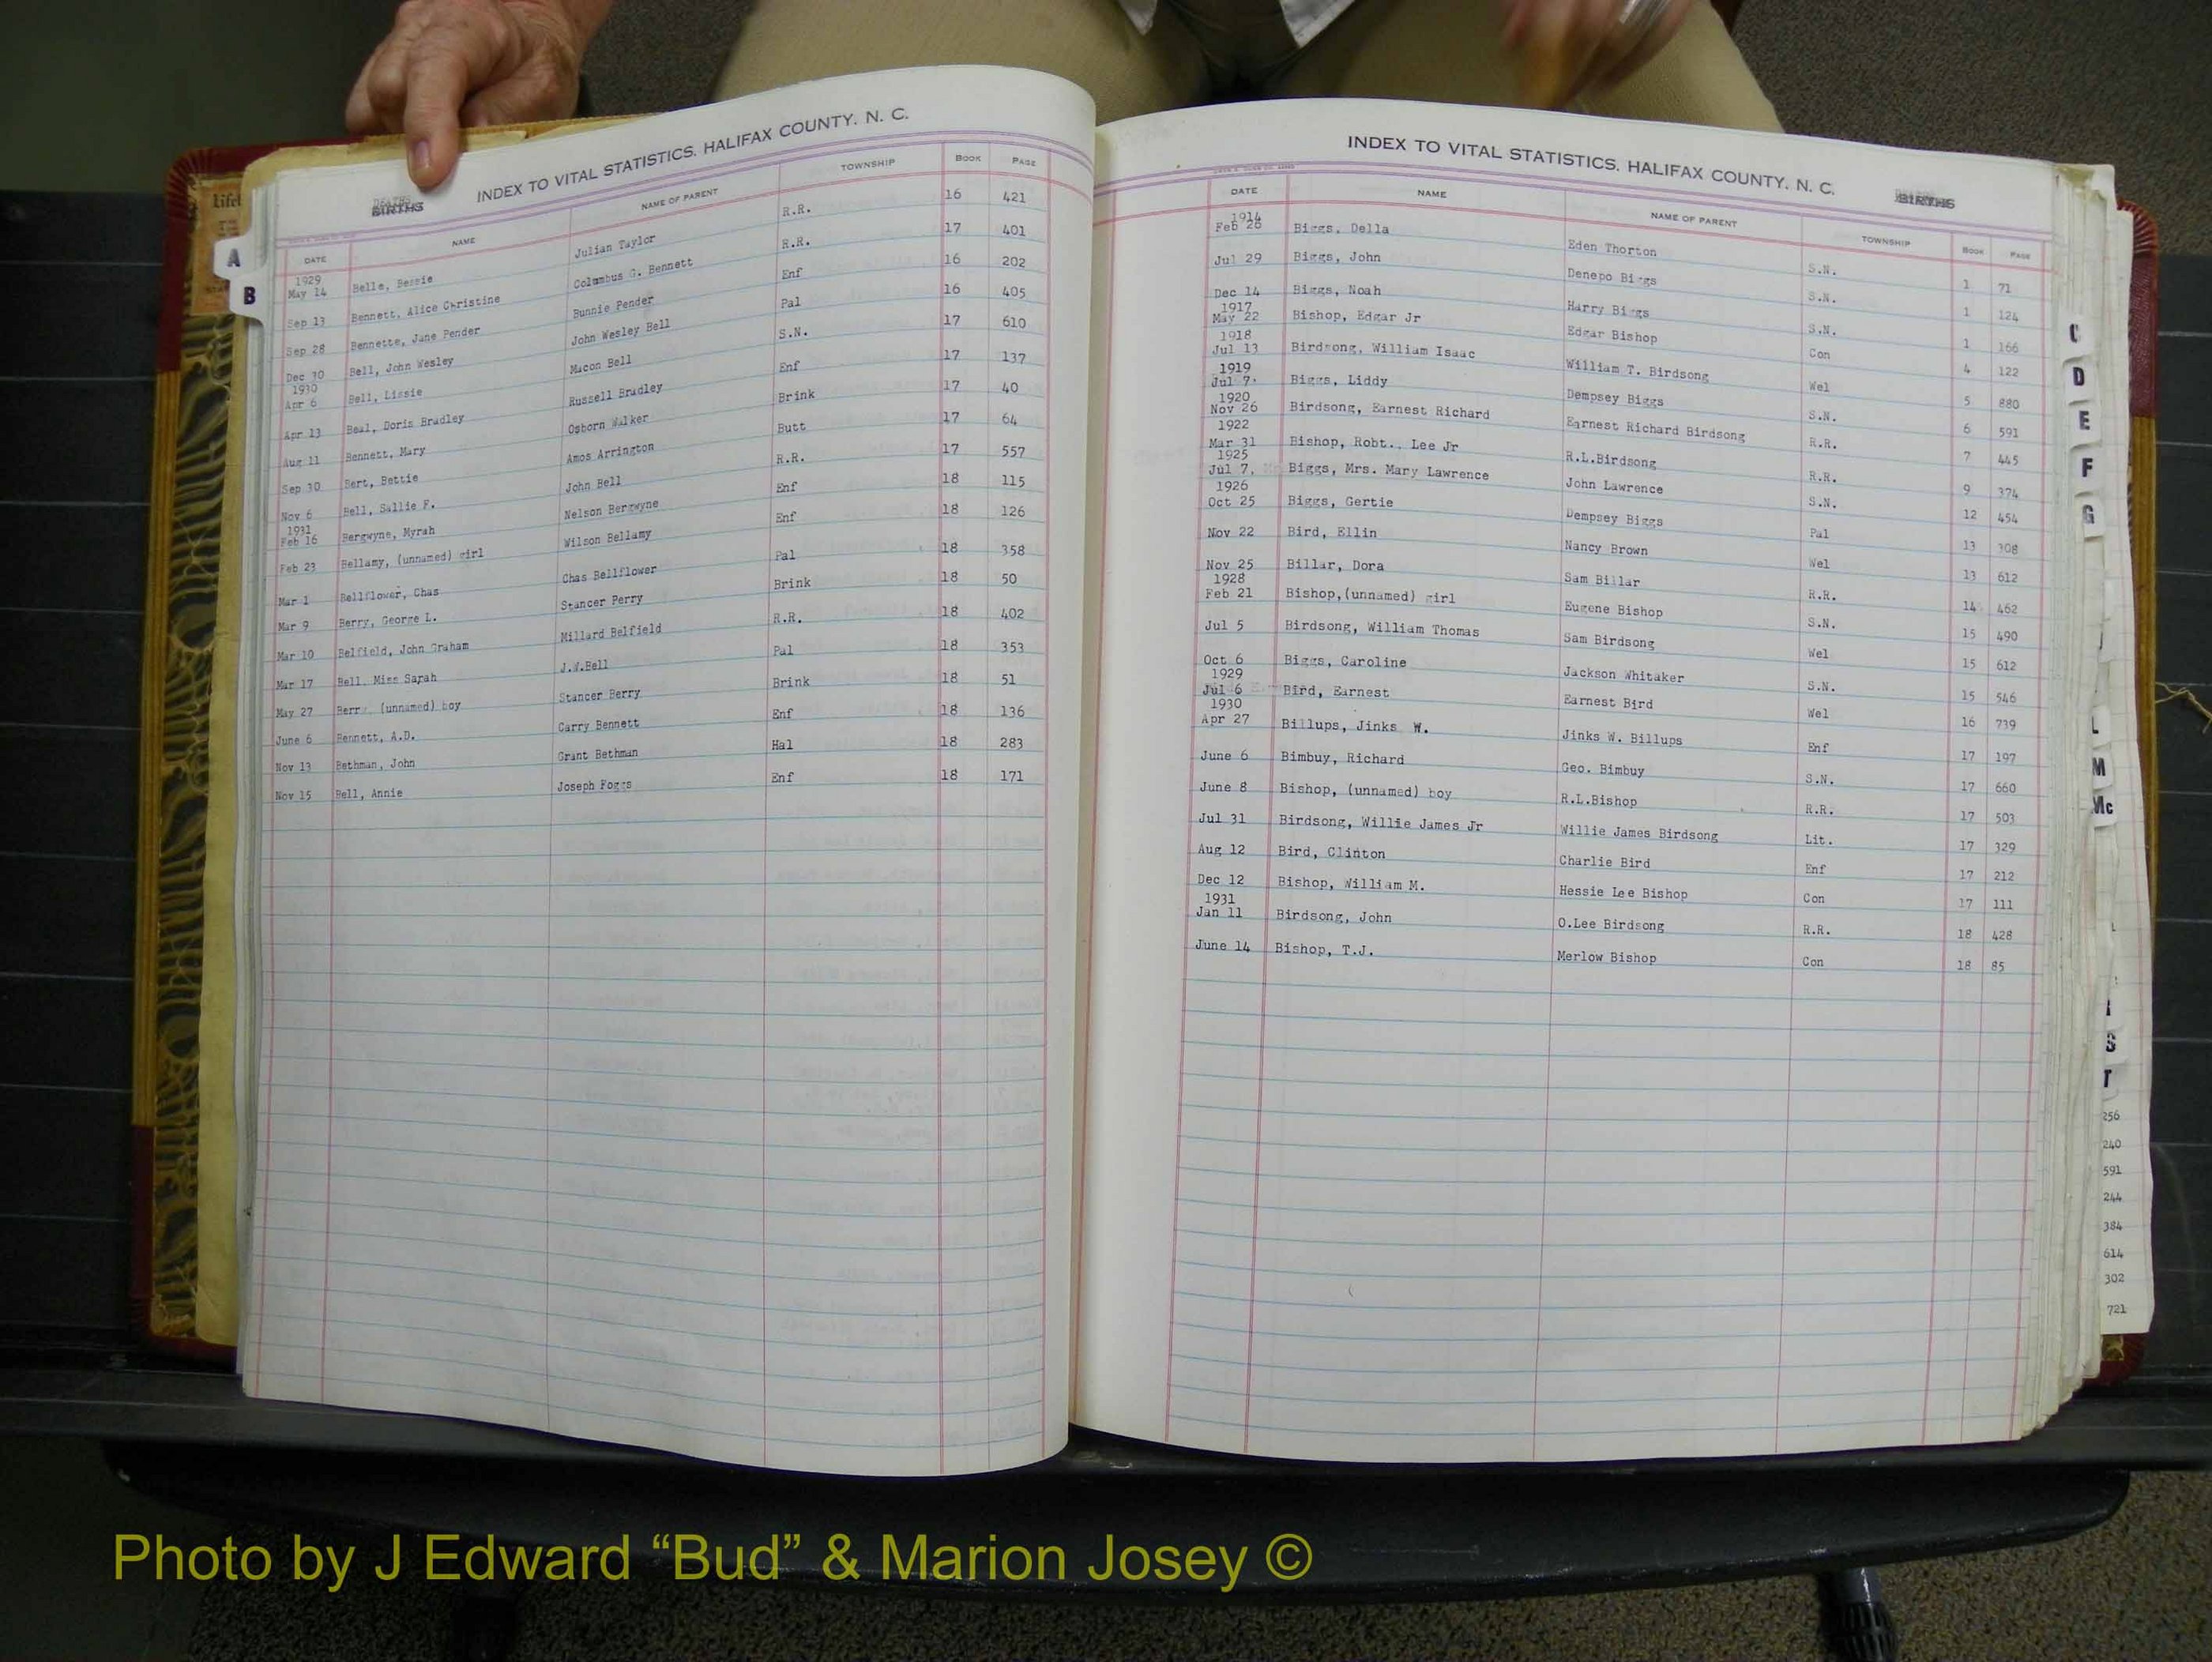 INDEX TO VITAL STATISTICS. HALIFAX COUNTY. N. C.
DATE NAME NAME OF PARENT TOWNSHIP BOOK PAGE
1929
May 14 Belle, Bessie Julian Taylor R.R. 16 421
Sep 13 Bennett, Alice Christine Columbus G. Bennett R.R. 17 401
Sep 28 Bennette, Jane Pender Bunnie Pender Enf 16 202
Dec 30 Bell, John Wesley John Wesley Bell Pal 16 405
1930
Apr 6 Bell, Lissie Macon Bell S.N. 17 610
Apr 13 Beal, Doris Bradley Russell Bradley Enf 17 137
Aug 11 Bennett, Mary Osborn Walker Brink 17 40
Sep 30 Bert, Bettie Amos Arrington Butt 17 64
Nov 6 Bell, Sallie F. John Bell R.R. 17 557
1931
Feb 16 Bergwyne, Myrah Nelson Bergwyne Enf 18 115
Feb 23 Bellamy, (unnamed) girl Wilson Bellamy Enf 18 126
Mar 1 Bellflower, Chas Chas Bellflower Pal 18 358
Mar 9 Berry, George L. Stancer Perry Brink 18 50
Mar 10 Belfield, John Graham Millard Belfield R.R. 18 402
Mar 17 Bell, Miss Sarah J.W.Bell Pal 18 353
May 27 Berry (unnamed) boy Stancer Berry Brink 18 51
June 6 Bennett, A.D. Carry Bennett Enf 18 136
Nov 13 Bethman, John Grant Bethman Hal 18 283
Nov 15 Bell, Annie Joseph Foggs Enf 18 171
A
B
INDEX TO VITAL STATISTICS. HALIFAX COUNTY. N. C.
DATE NAME NAME OF PARENT TOWNSHIP BOOK PAGE
1914
Feb 26 Biggs, Della Eden Thorton S.N. 1 71
Jul 29 Biggs, John Denepo Biggs S.N. 1 124
Dec 14 Biggs, Noah Harry Biggs S.N. 1 166
1917
May 22 Bishop, Edgar Jr Edgar Bishop Con 4 122
1918
Jul 13 Birdsong, William Isaac William T. Birdsong Wel 5 880
1919
Jul 7 Biggs, Liddy Dempsey Biggs S.N. 6 591
1920
Nov 26 Birdsong, Earnest Richard Earnest Richard Birdsong R.R. 7 445
1922
Mar 31 Bishop, Robt.. Lee Jr R.L.Birdsong R.R. 9 374
1925
Jul 7, Biggs, Mrs. Mary Lawrence John Lawrence S.N. 12 454
1926
Oct 25 Biggs, Gertie Dempsey Biggs Pal 13 308
Nov 22 Bird, Ellin Nancy Brown Wel 13 612
Nov 25 Billar, Dora Sam Billar R.R. 14 462
1928
Feb 21 Bishop,(unnamed) girl Eugene Bishop S.N. 15 490
Jul 5 Birdsong, William Thomas Sam Birdsong Wel 15 612
Oct 6 Biggs, Caroline Jackson Whitaker S.N. 15 546
1929
Jul 6 Bird, Earnest Earnest Bird Wel 16 739
1930
Apr 27 Billups, Jinks W. Jinks W. Billups Enf 17 197
June 6 Bimbuy, Richard Geo. Bimbuy S.N. 17 660
June 8 Bishop, (unnamed) boy R.L.Bishop R.R. 17 503
Jul 31 Birdsong, Willie James Jr Willie James Birdsong Lit. 17 329
Aug 12 Bird, Clinton Charlie Bird Enf 17 212
Dec 12 Bishop, William M. Hessie Lee Bishop Con 17 111
1931
Jan 11 Birdsong, John O.Lee Birdsong R.R. 18 428
June 14 Bishop, T.J. Merlow Bishop Con 18 85
D
E
F
G
L
M
Mc
S
T
256
240
591
244
384
614
302
721
Photo by J Edward “Bud” & Marion Josey ©